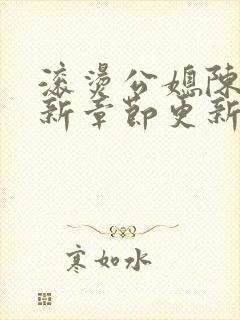 滚烫公媳陈
新章节更新
寒如水